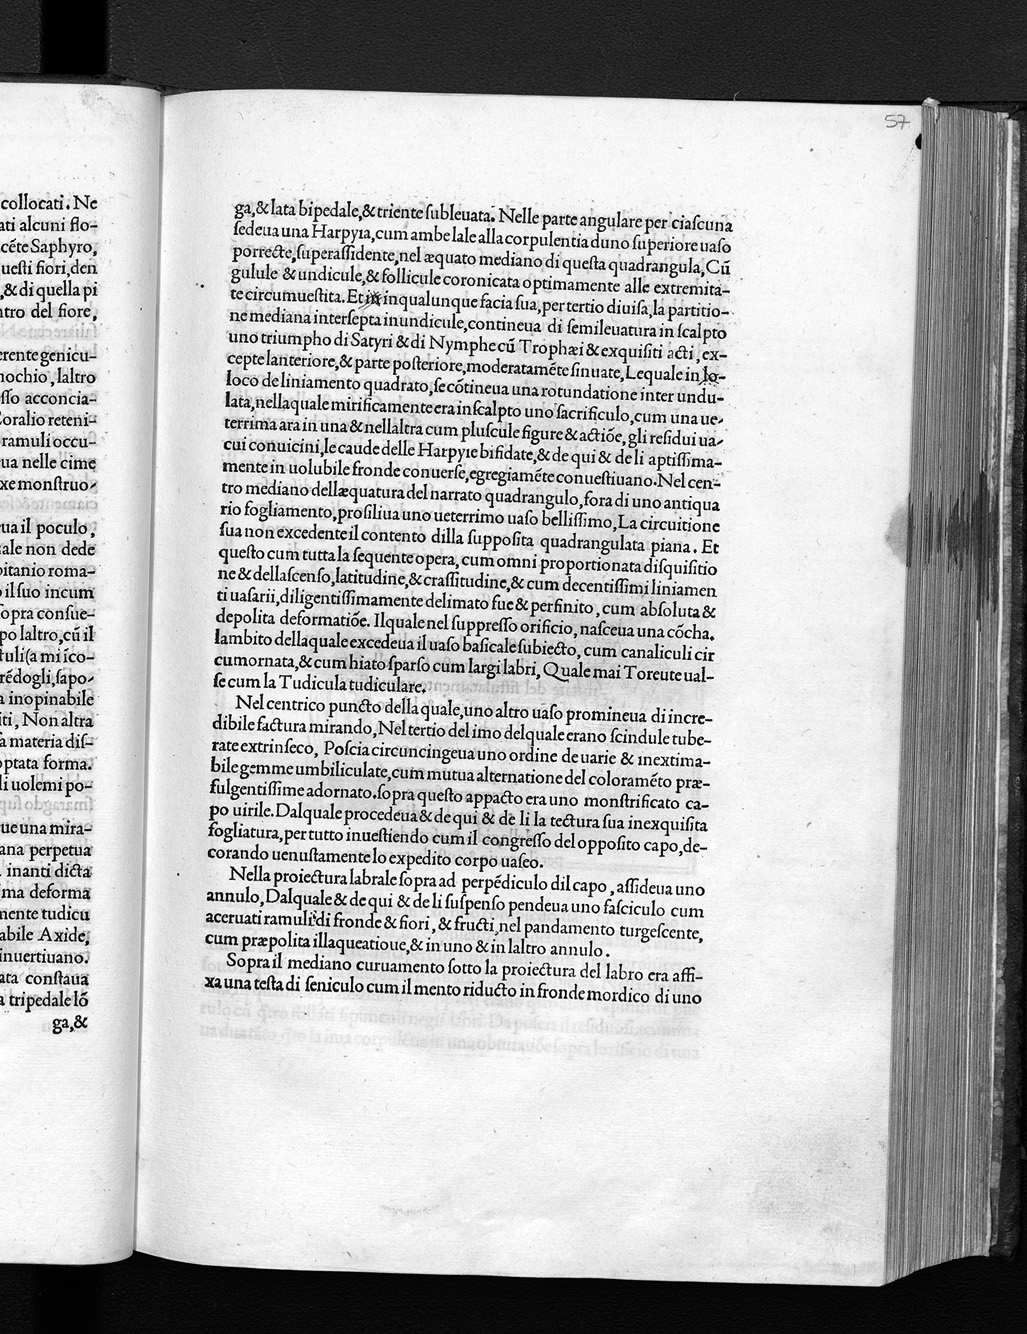 collocati. Ne
ati alcuni flo-
cẽte Saphyro,
uesti fiori, den
, & di quella pi
ntro del fiore,
erente genicu-
nochio, laltro
esso acconcia-
Coralio reteni-
ramuli occu-
ua nelle cime
xe monstruo-
eua il poculo,
ale non dede
pitanio roma-
o il suo incum
sopra consue-
po laltro, cũ il
tuli(a mi ico-
rẽdogli, sapo-
a inopinabile
iti, Non altra
sa materia dis-
optata forma.
li uolemi po-
ue una mira-
ana perpetua
inanti dicta
ma deforma
mente tudicu
abile Axide,
inuertiuano.
ata constaua
a tripedale lõ
ga, &
57
ga, & lata bipedale, & triente subleuata. Nelle parte angulare per ciascuna
sedeua una Harpyia, cum ambe lale alla corpulentia duno superiore uaso
porrecte, superassidente, nel æquato mediano di questa quadrangula, Cũ
gulule & undicule, & follicule coronicata optimamente alle extremita-
te circumuestita. Et in qualunque facia sua, per tertio diuisa, la partitio-
ne mediana intersepta in undicule, contineua di semileuatura in scalpto
uno triumpho di Satyri & di Nymphe cũ Trophæi & exquisiti acti, ex-
cepte lanteriore, & parte posteriore, moderatamẽte sinuate, Lequale in lo-
loco de liniamento quadrato, se cõtineua una rotundatione inter undu-
lata, nellaquale mirificamente era in scalpto uno sacrificulo, cum una ue-
terrima ara in una & nellaltra cum pluscule figure & actiõe, gli residui ua-
cui conuicini, le caude delle Harpyie bifidate, & de qui & de li aptissima-
mente in uolubile fronde conuerse, egregiamẽte conuestiuano. Nel cen-
tro mediano dellæquatura del narrato quadrangulo, fora di uno antiqua
rio fogliamento, prosiliua uno ueterrimo uaso bellissimo, La circuitione
sua non excedente il contento dilla supposita quadrangulata piana. Et
questo cum tutta la sequente opera, cum omni proportionata disquisitio
ne & dellascenso, latitudine, & crassitudine, & cum decentissimi liniamen
ti uasarii, diligentissimamente delimato fue & perfinito, cum absoluta &
depolita deformatiõe. Ilquale nel suppresso orificio, nasceua una cõcha.
lambito dellaquale excedeua il uaso basicale subiecto, cum canaliculi cir
cumornata, & cum hiato sparso cum largi labri, Quale mai Toreute ual-
se cum la Tudicula tudiculare.
Nel centrico puncto della quale, uno altro uaso promineua di incre-
dibile factura mirando, Nel tertio del imo delquale erano scindule tube-
rate extrinseco, Poscia circuncingeua uno ordine de uarie & inextima-
bile gemme umbiliculate, cum mutua alternatione del coloramẽto præ-
fulgentissime adornato. sopra questo appacto era uno monstrificato ca-
po uirile. Dalquale procedeua & de qui & de li la tectura sua inexquisita
fogliatura, per tutto inuestiendo cum il congresso del opposito capo, de-
corando uenustamente lo expedito corpo uaseo.
Nella proiectura labrale sopra ad perpẽdiculo dil capo, assideua uno
annulo, Dalquale & de qui & de li suspenso pendeua uno fasciculo cum
aceruati ramuli di fronde & fiori, & fructi, nel pandamento turgescente,
cum præpolita illaqueatioue, & in uno & in laltro annulo.
Sopra il mediano curuamento sotto la proiectura del labro era affi-
xa una testa di seniculo cum il mento riducto in fronde mordico di uno